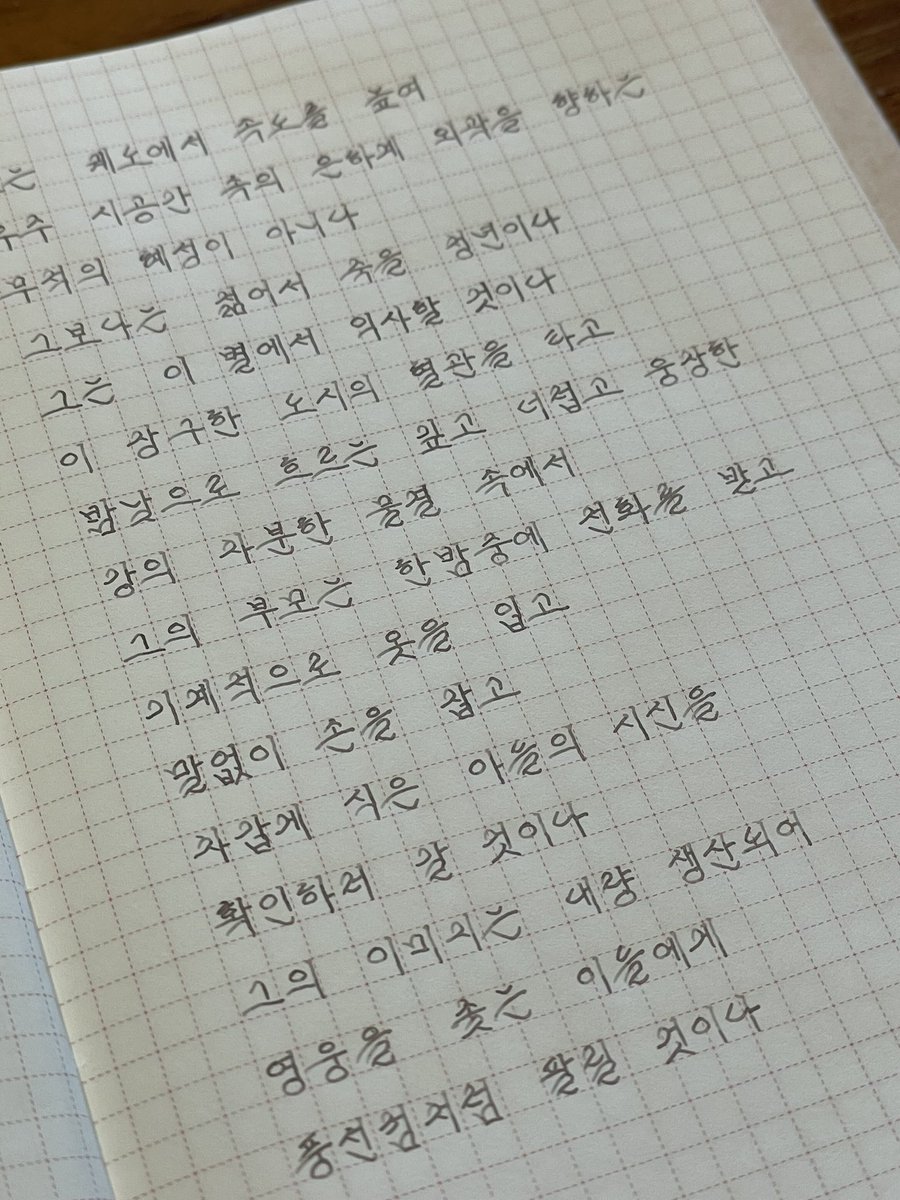 는 궤도에서 속도를 높여
우주 시공간 속의 은하계 외곽을 향하는
무적의 혜성이 아니다
그보다는 젊어서 죽을 청년이다
그는 이 별에서 익사할 것이다
이 장구한 도시의 혈관을 타고
밤낮으로 흐르는 깊고 더럽고 웅장한
강의 차분한 물결 속에서
그의 부모는 한밤중에 전화를 받고
기계적으로 옷을 입고
말없이 손을 잡고
차갑게 식은 아들의 시신을
확인하러 갈 것이다
그의 이미지는 대량 생산되어
영웅을 좇는 이들에게
풍선껌처럼 팔릴 것이다